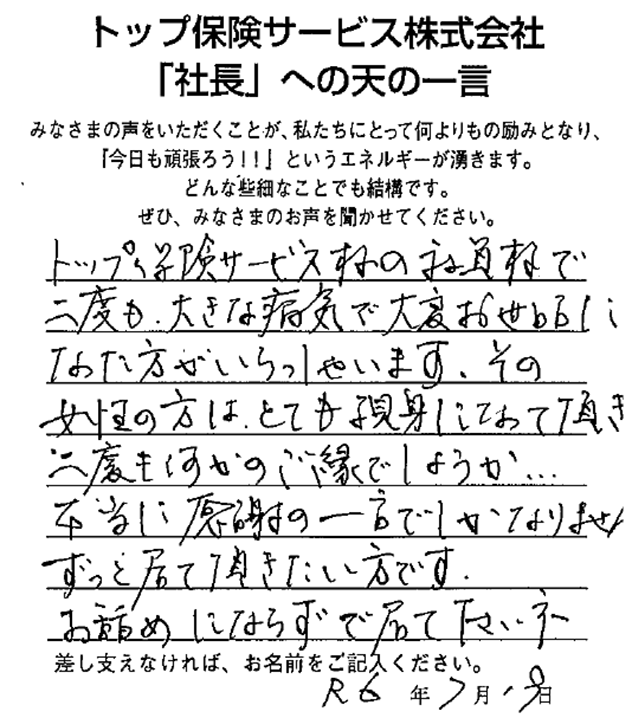 トップ保険サービス株式会社
「社長」への天の一言
みなさまの声をいただくことが、私たちにとって何よりもの励みとなり、
『今日も頑張ろう!!』というエネルギーが湧きます。
どんな些細なことでも結構です。
ぜひ、みなさまのお声を聞かせてください。
トップ保険サービス様の社員様で
二度も、大きな病気で大変お世話に
なった方がいらっしゃいます、その
女性の方は、とても親身になって頂き
二度も何かのご縁でしょうか…
本当に感謝の一言でしかなりません
ずっと居て頂きたい方です.
お辞めにならずで居て下さいネ
差し支えなければ、お名前をご記入ください。
R6年7月 日